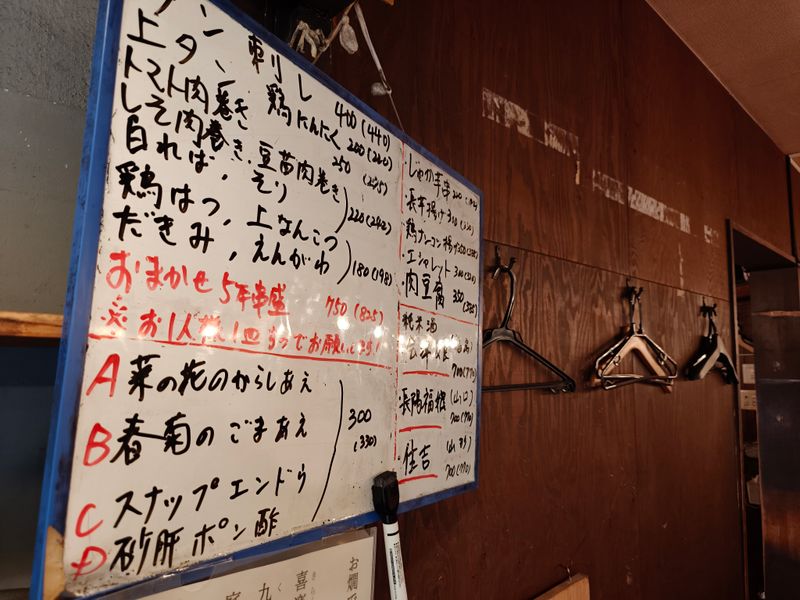 上タン刺し 400(440)
トマト肉巻き、鶏にんにく 200(220)
しそ肉巻き、豆苗肉巻き 250(275)
白ればー、そり
鶏はつ、上なんこつ 220(242)
だきみ、えんがわ 180(198)
おまかせ5本串盛 750(825)
※お1人様1皿までお願いします!
A 菜の花のからしあえ
B 春菊のごまあえ 300(330)
C スナップエンドウ
D 砂肝ポン酢
・じゃが芋串 200
・長芋揚げ
・鶏ナンコツ揚げ
・エシャレット 300
・肉豆腐 350
純米酒
700(770)
・長陽福娘(山口)
700(770)
・住吉(山形)
700(770)
お燗
喜
九